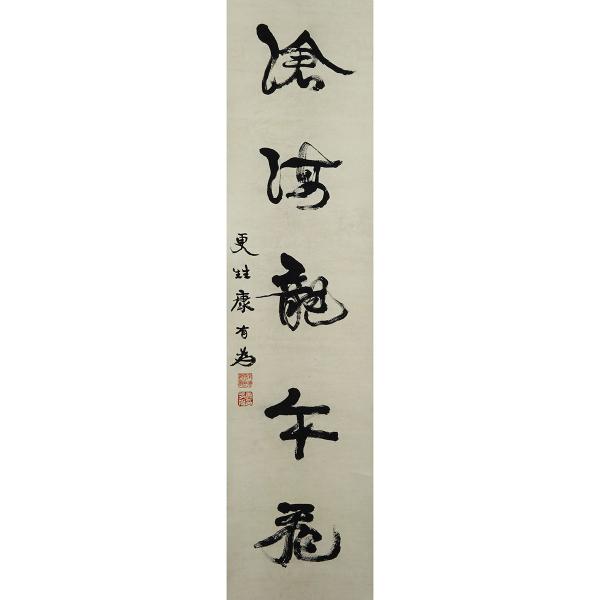 滄海龍午
更甡康有為